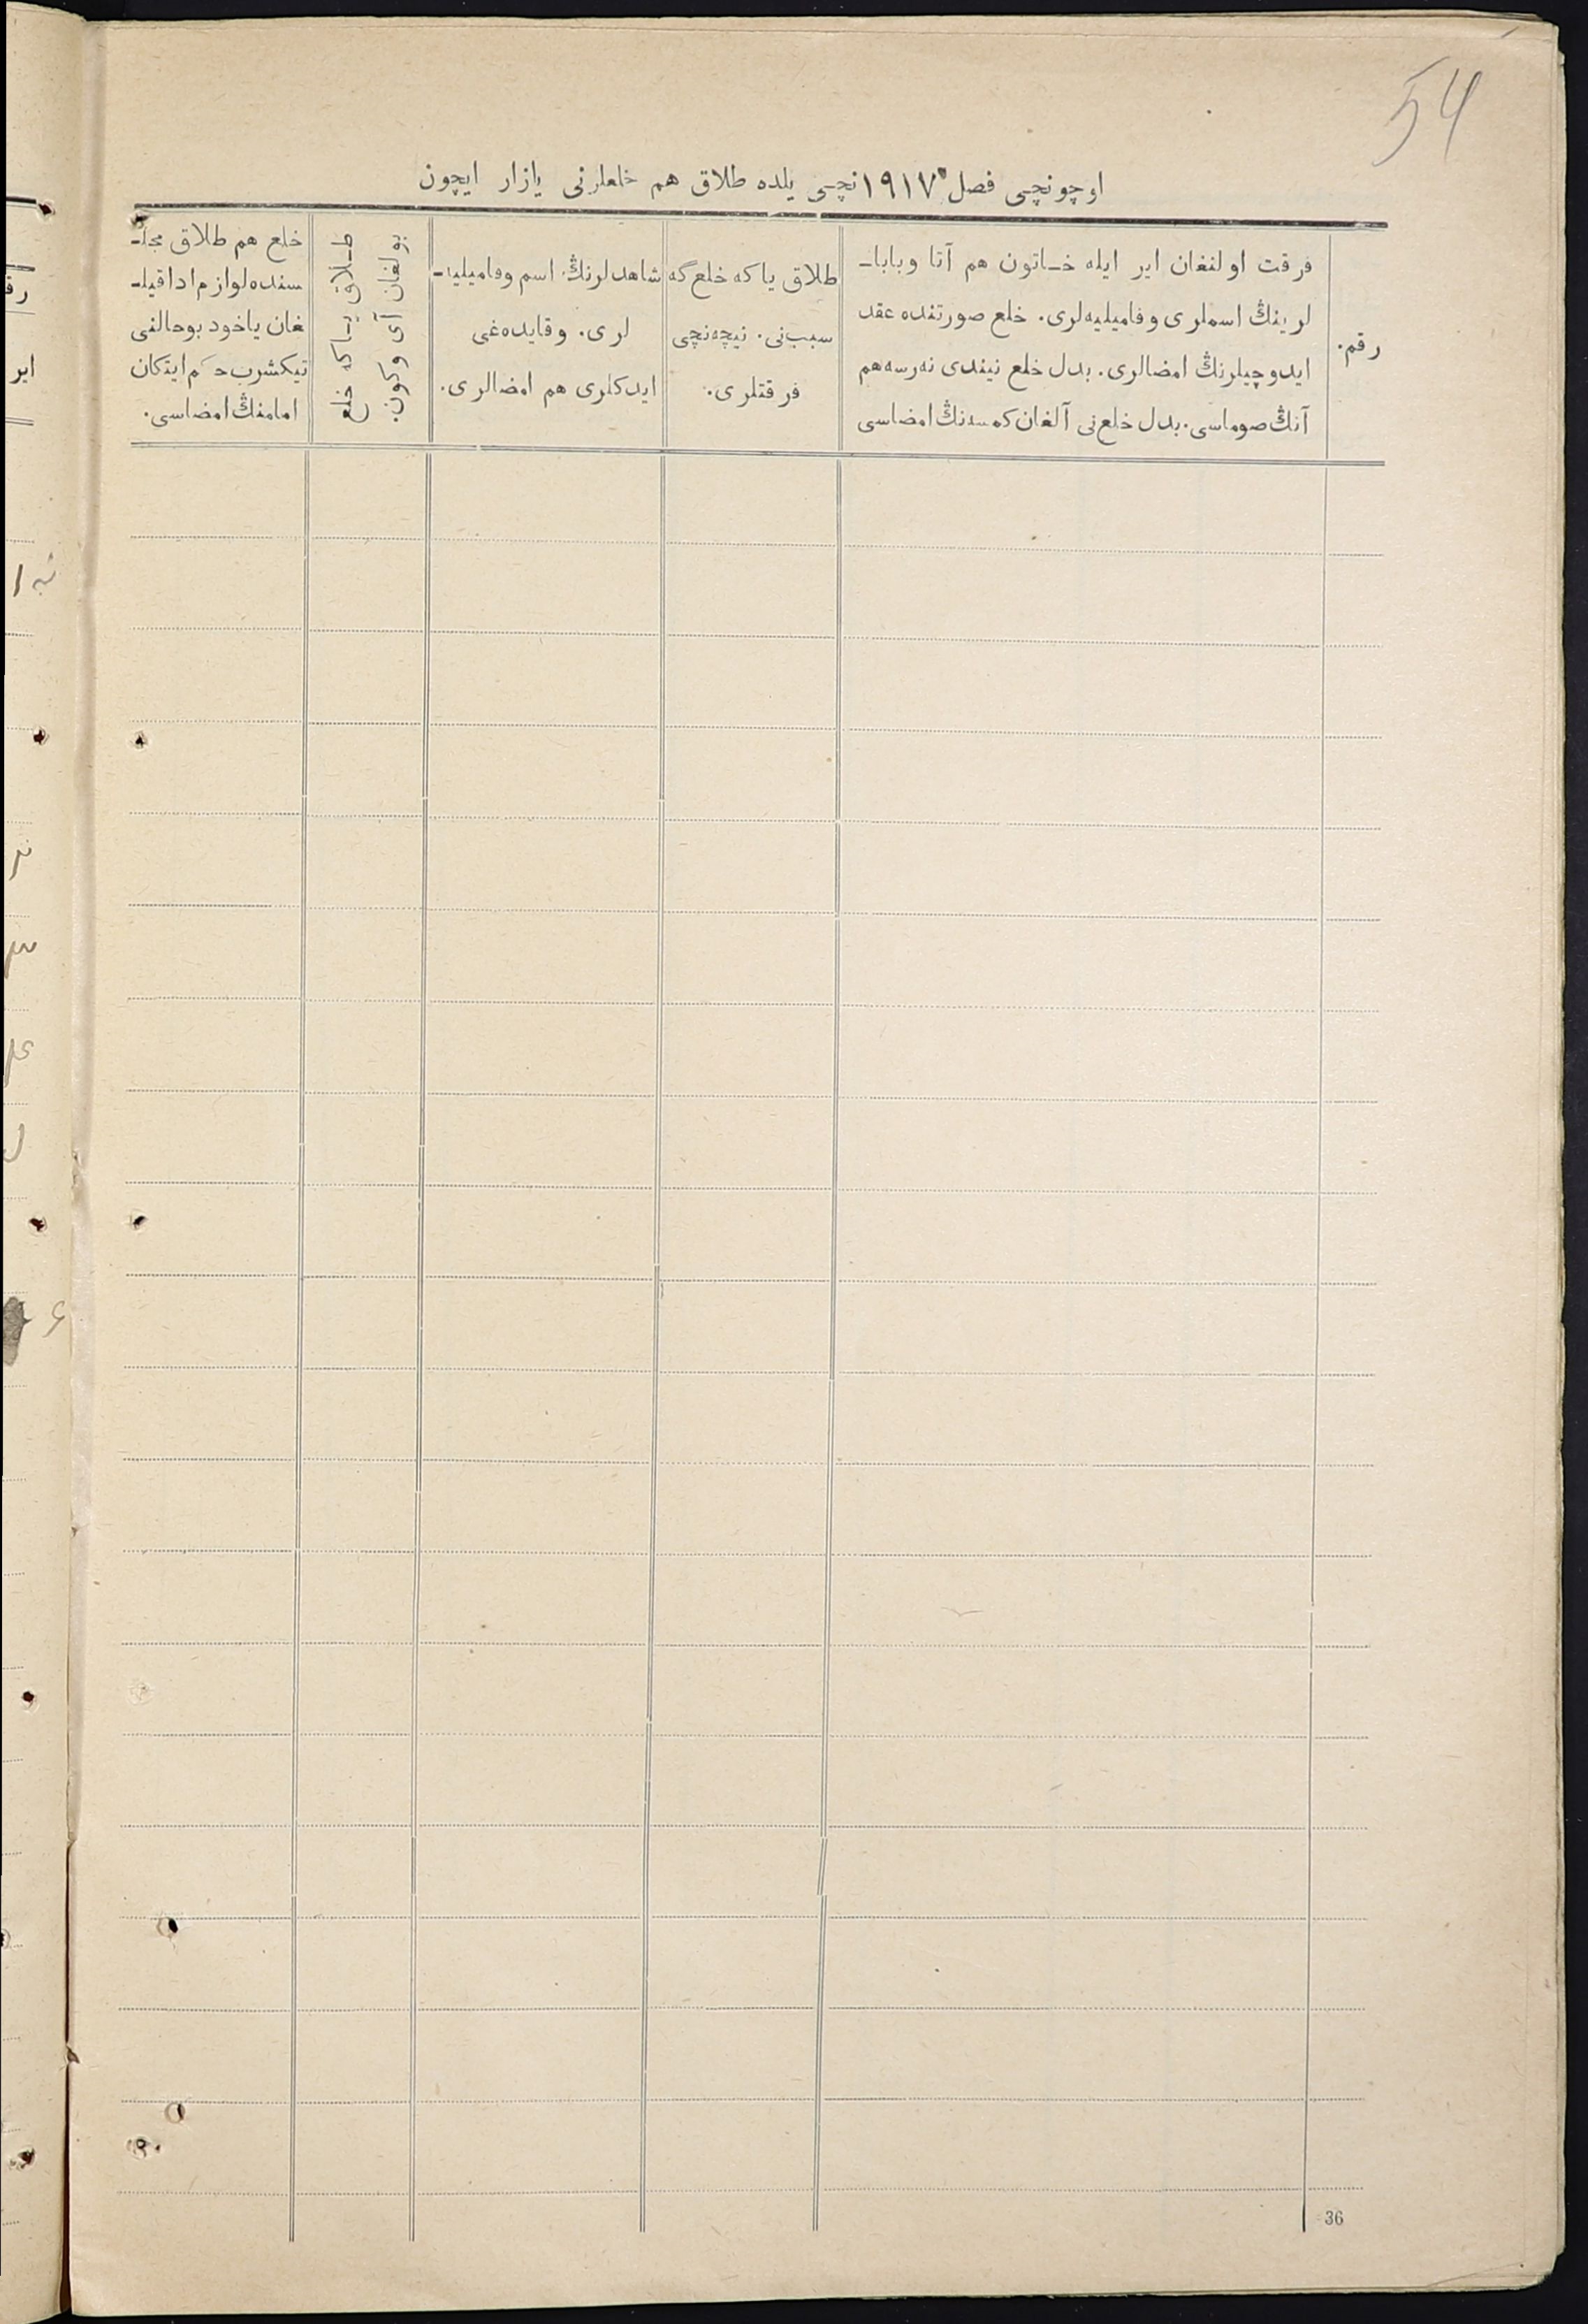 54
اوچونچی فصل ١٩١٧نچی یلده طلاق هم خلعلرنی یازار ایچون
رقم.
فرقت اولنغان ایر ایله خـاتون هم آتا وبابا‌ـ
لرینڭ اسملری وفامیلیه‌لری. خلع صورتنده عقد
ایدوچیلرنڭ امضالری. بدل خلع نیندی نه‌رسه هم
آنڭ صوماسی. بدل خلع‌نی آلغان کمسه‌نڭ امضاسی
طلاق یاکه خلع گه
سبب نی. نیچه‌نچی
فرقتلری.
شاهدلرنڭ اسم وفامیلیه‌ـ
لری. وقایده‌غی
ایدکلری هم امضالری.
طـلاق یـاکه خلع
بولغان آی وکون.
خلع هم طلاق مجلـ
سنده لوازم ادا قیلـ
غان یاخود بو حالنی
تیکشرب حکم ایتکان
امامنڭ امضاسی.
ایر
36